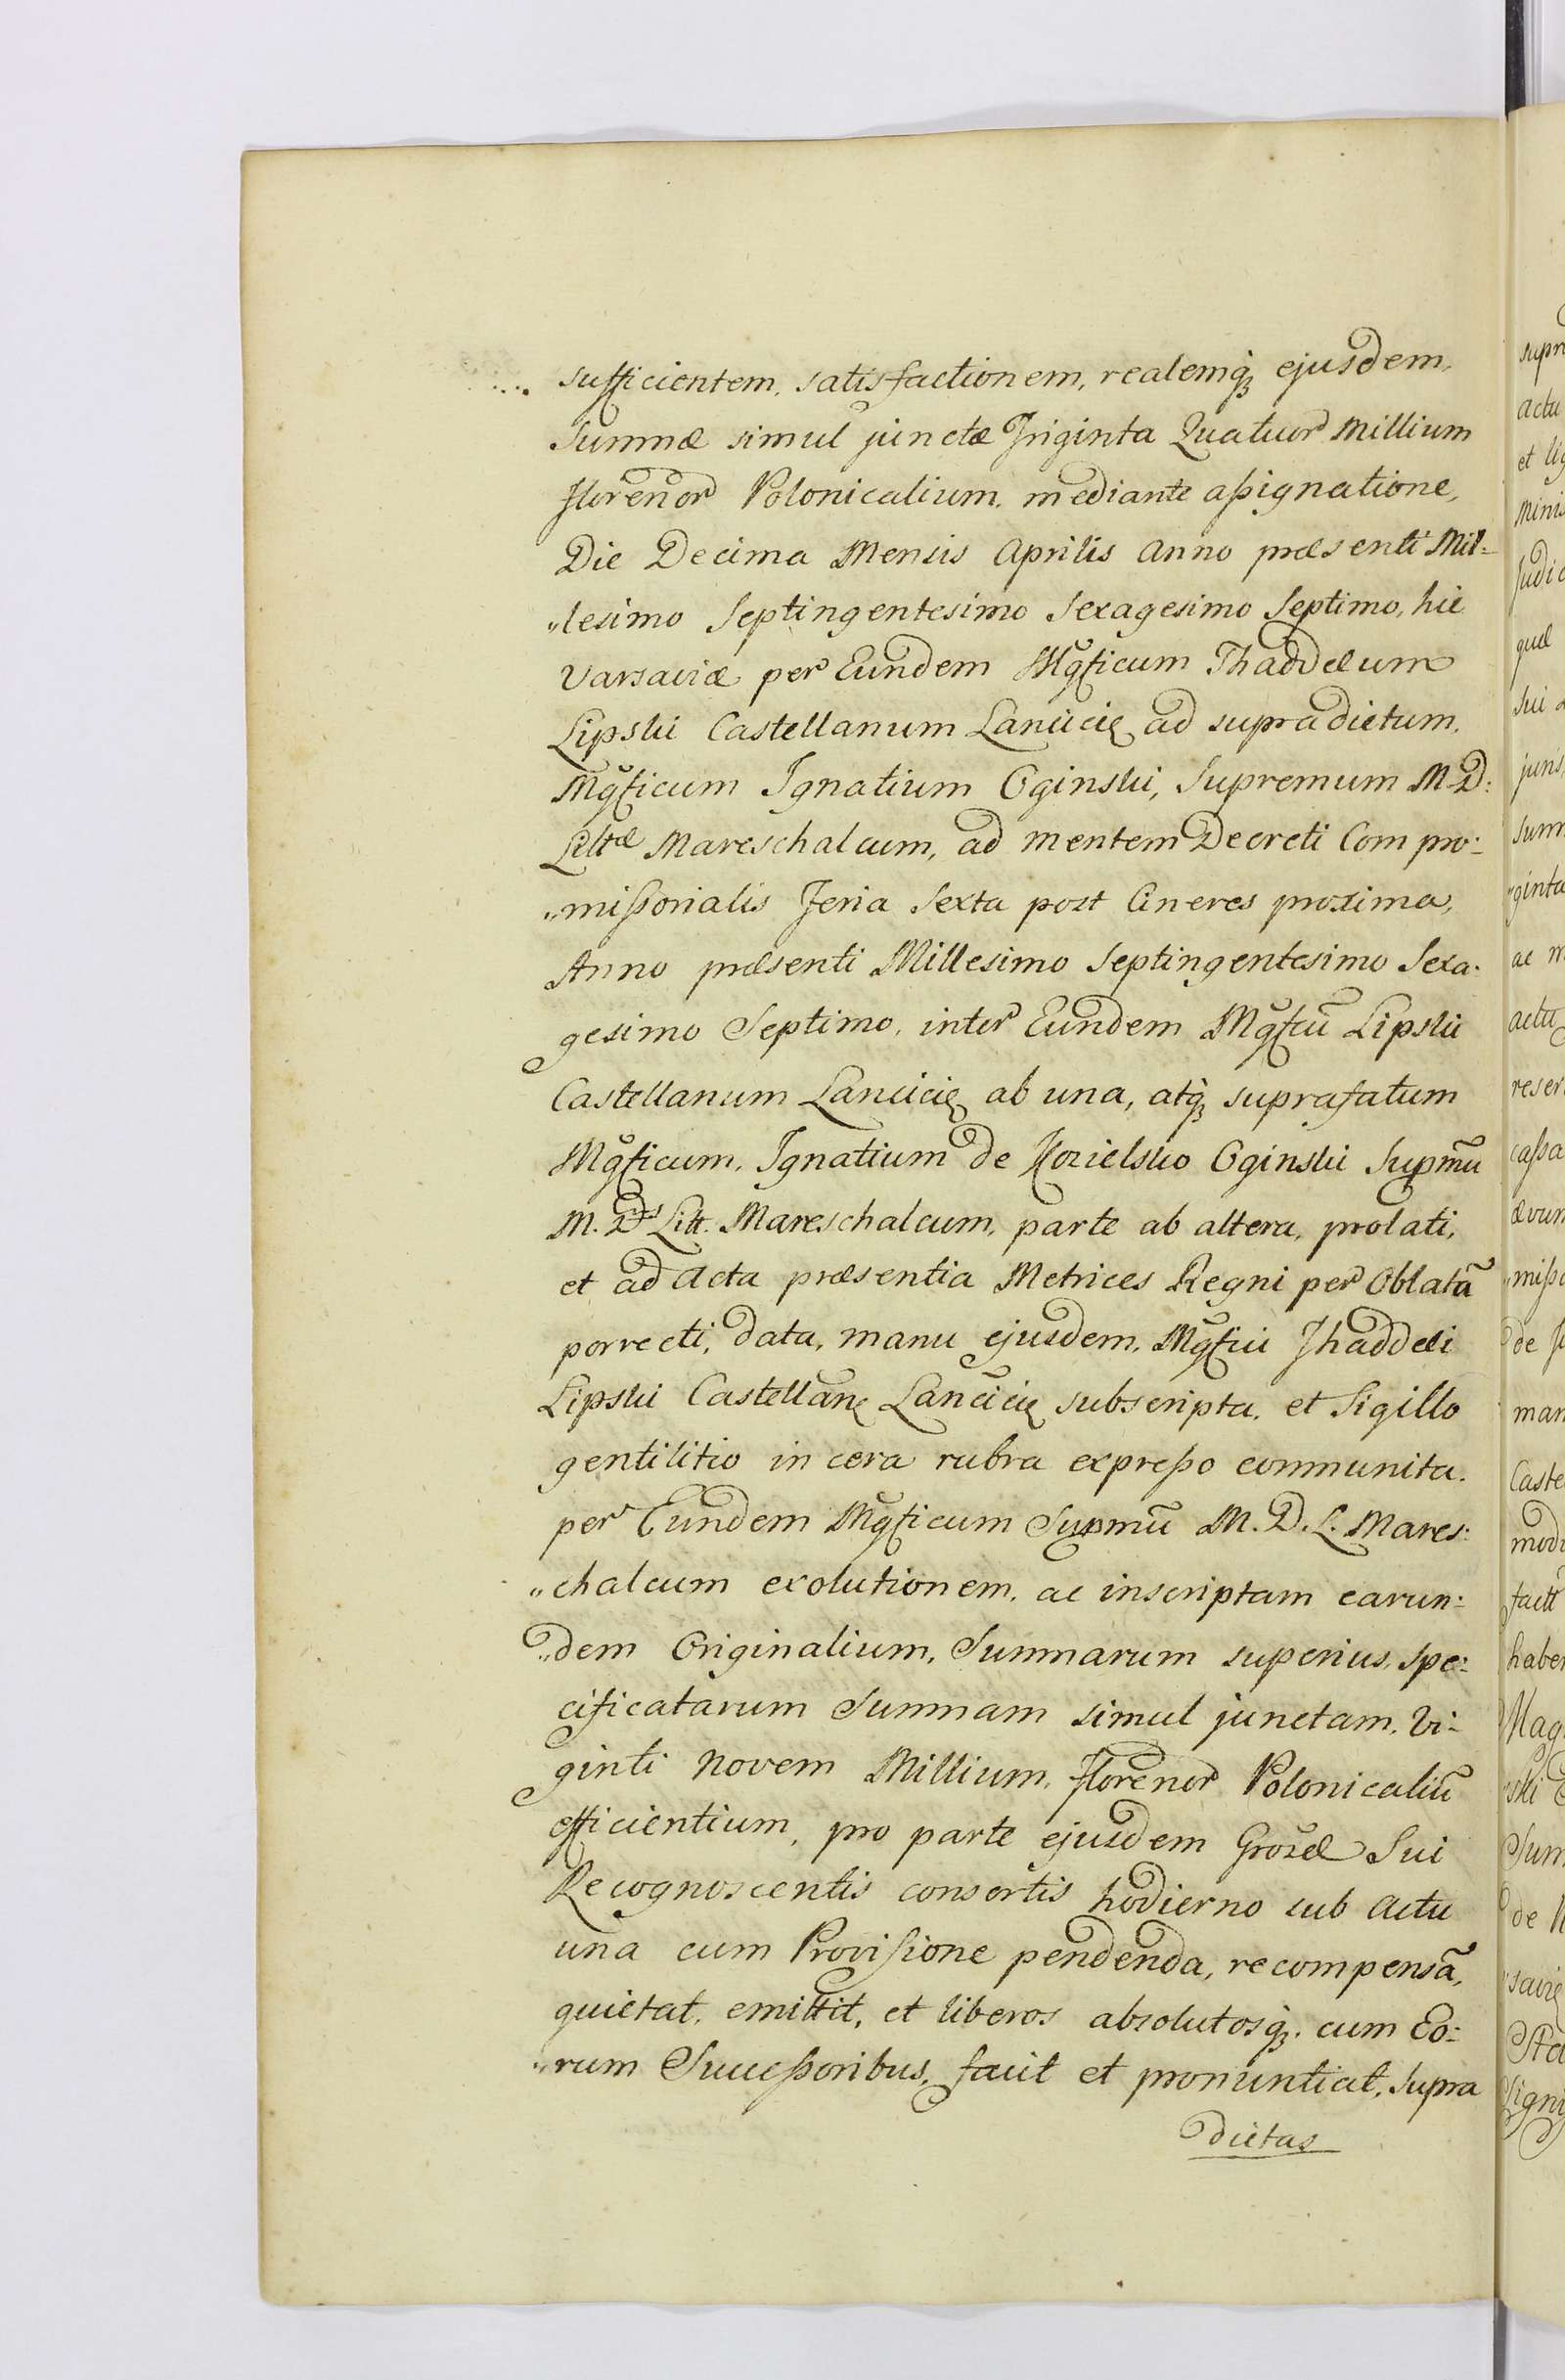 sufficientem, satisfactionem, realemq̓ʒ ejusdem,
Summæ simul junctæ Triginta Quatuor Millium
Floreñor Polonicalium, mediante aßignatione,
Die Decima Mensis Aprilis Anno præsenti Mil=
„lesimo Septingentesimo Sexagesimo Septimo, hic
Varsaviæ per Eundem Mg̃ficum Thaddæum
Lipski Castellanum Lancicię ad supradictum,
Mg̃ficum Ignatium Oginski, Supremum M. D:
Littæ Mareschalcum, ad mentem Decreti Compro=
„mißorialis Feria Sexta post Cineres proxima,
Anno præsenti Millesimo Septingentesimo Sexa=
gesimo Septimo, inter Eundem Mg̃fcũ Lipski
Castellanum Lancicię ab una, atq̓ʒ suprafatum
Mg̃ficum, Ignatium de Kozielsko Oginski Supmũ
M. Ds Litt. Mareschalcum, parte ab altera, prolati,
et ad Acta præsentia Metrices Regni per Oblatã
porrecti, data, manu ejusdem, Mg̃fici Thaddæi
Lipski Castellañ Lancicię subscripta, et Sigillo
gentilitio in cera rubra expreßo communita.
per Eundem Mg̃ficum Supmũ M. D. L. Mares=
„chalcum exolutionem, ac inscriptam earun=
„dem Originalium, Summarum superius, spe=
cificatarum Summam simul junctam, Vi=
ginti Novem Millium, Floreñor Polonicaliũ
efficientium, pro parte ejusdem Gr̃osæ Sui
Recognoscentis consortis hodierno sub Actu
una cum Provisione pendenda, recompensã,
quietat, emittit, et liberos absolutosq̓ʒ cum Eo=
„rum Succeßoribus, facit et pronuntiat, supra
dictas